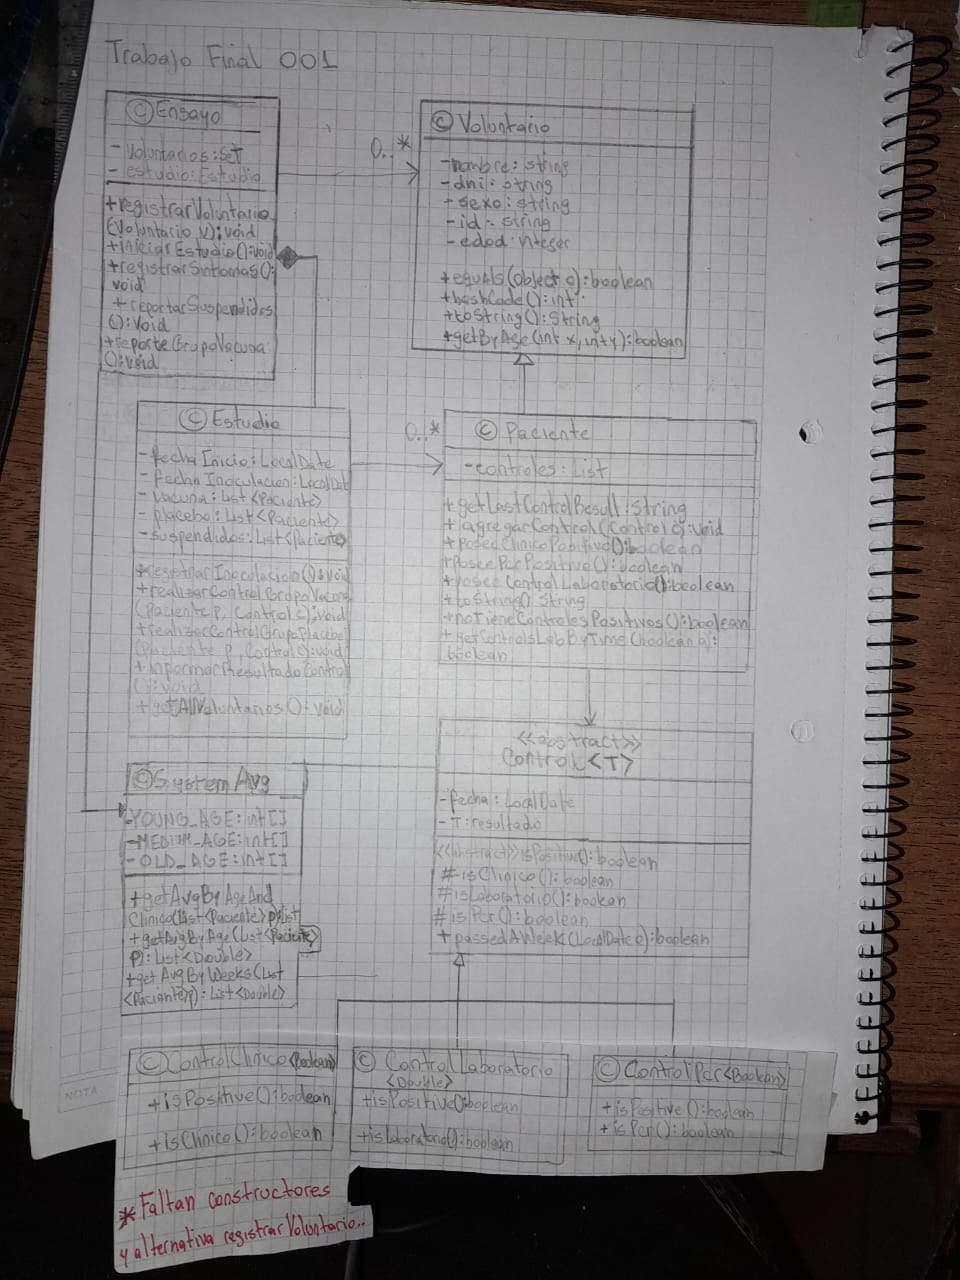 Trabajo Final 001
© Ensayo
- Voluntarios: Set
- estudio: Estudio
+registrarVoluntario
(Voluntario v): void
+iniciarEstudio(): void
+registrarSintomas():
void
+reportarSuspendidos
(): Void
+reporteGrupoVacuna
(): void
0..*
© Voluntario
-nombre: string
-dni: string
+sexo: string
-id: string
-edad: nteger
+equals(Object o): boolean
+hashCode(): int
+toString(): String
+getByAge(int x, int y): boolean
© Estudio
-fecha Inicio: LocalDate
-fecha Inoculacion: LocalDate
-vacuna: List <Paciente>
-placebo: List <Paciente>
-suspendidos: List <Paciente>
+registrarInoculacion(): void
+realizarControlGrupoVacuna
(Paciente p, Control c): void
+realizarControlGrupoPlacebo
(Paciente p, Control c): void
+InformarResultadoControl
(): void
+getAllVoluntarios(): void
0..*
© Paciente
-controles: List
+getLastControlResult: String
+agregarControl(Control c): void
+poseeClinicoPositivo(): boolean
+PoseePcrPositivo(): boolean
+posee Control Laboratorio(): boolean
+toString(): String
+noTieneControlesPositivos(): boolean
+getControlsLabByTime(boolean b):
boolean
<<abstract>>
Control<T>
-fecha: LocalDate
-T: resultado
<<abstract>> isPositive(): boolean
#isClinico(): boolean
#isLaboratorio(): boolean
#isPcr(): boolean
+passedAWeek(LocalDate e): boolean
© System Avg
-YOUNG_AGE: int[]
-MEDIUM_AGE: int[]
-OLD_AGE: int[]
+getAvgByAgeAnd
Clinico(List<Paciente> p): List
+getAvgByAge(List<Paciente>
p): List<Double>
+getAvgByWeeks(List
<Paciante>p): List<Double>
© ControlClinico <Boolean>
+isPositive(): boolean
+isClinico(): boolean
© Control Laboratorio
<Double>
+isPositive(): boolean
+isLaboratorio(): boolean
© ControlPcr<Boolean>
+isPositive(): boolean
+isPcr(): boolean
NOTA
* Faltan constructores
y alternativa registrarVoluntario..